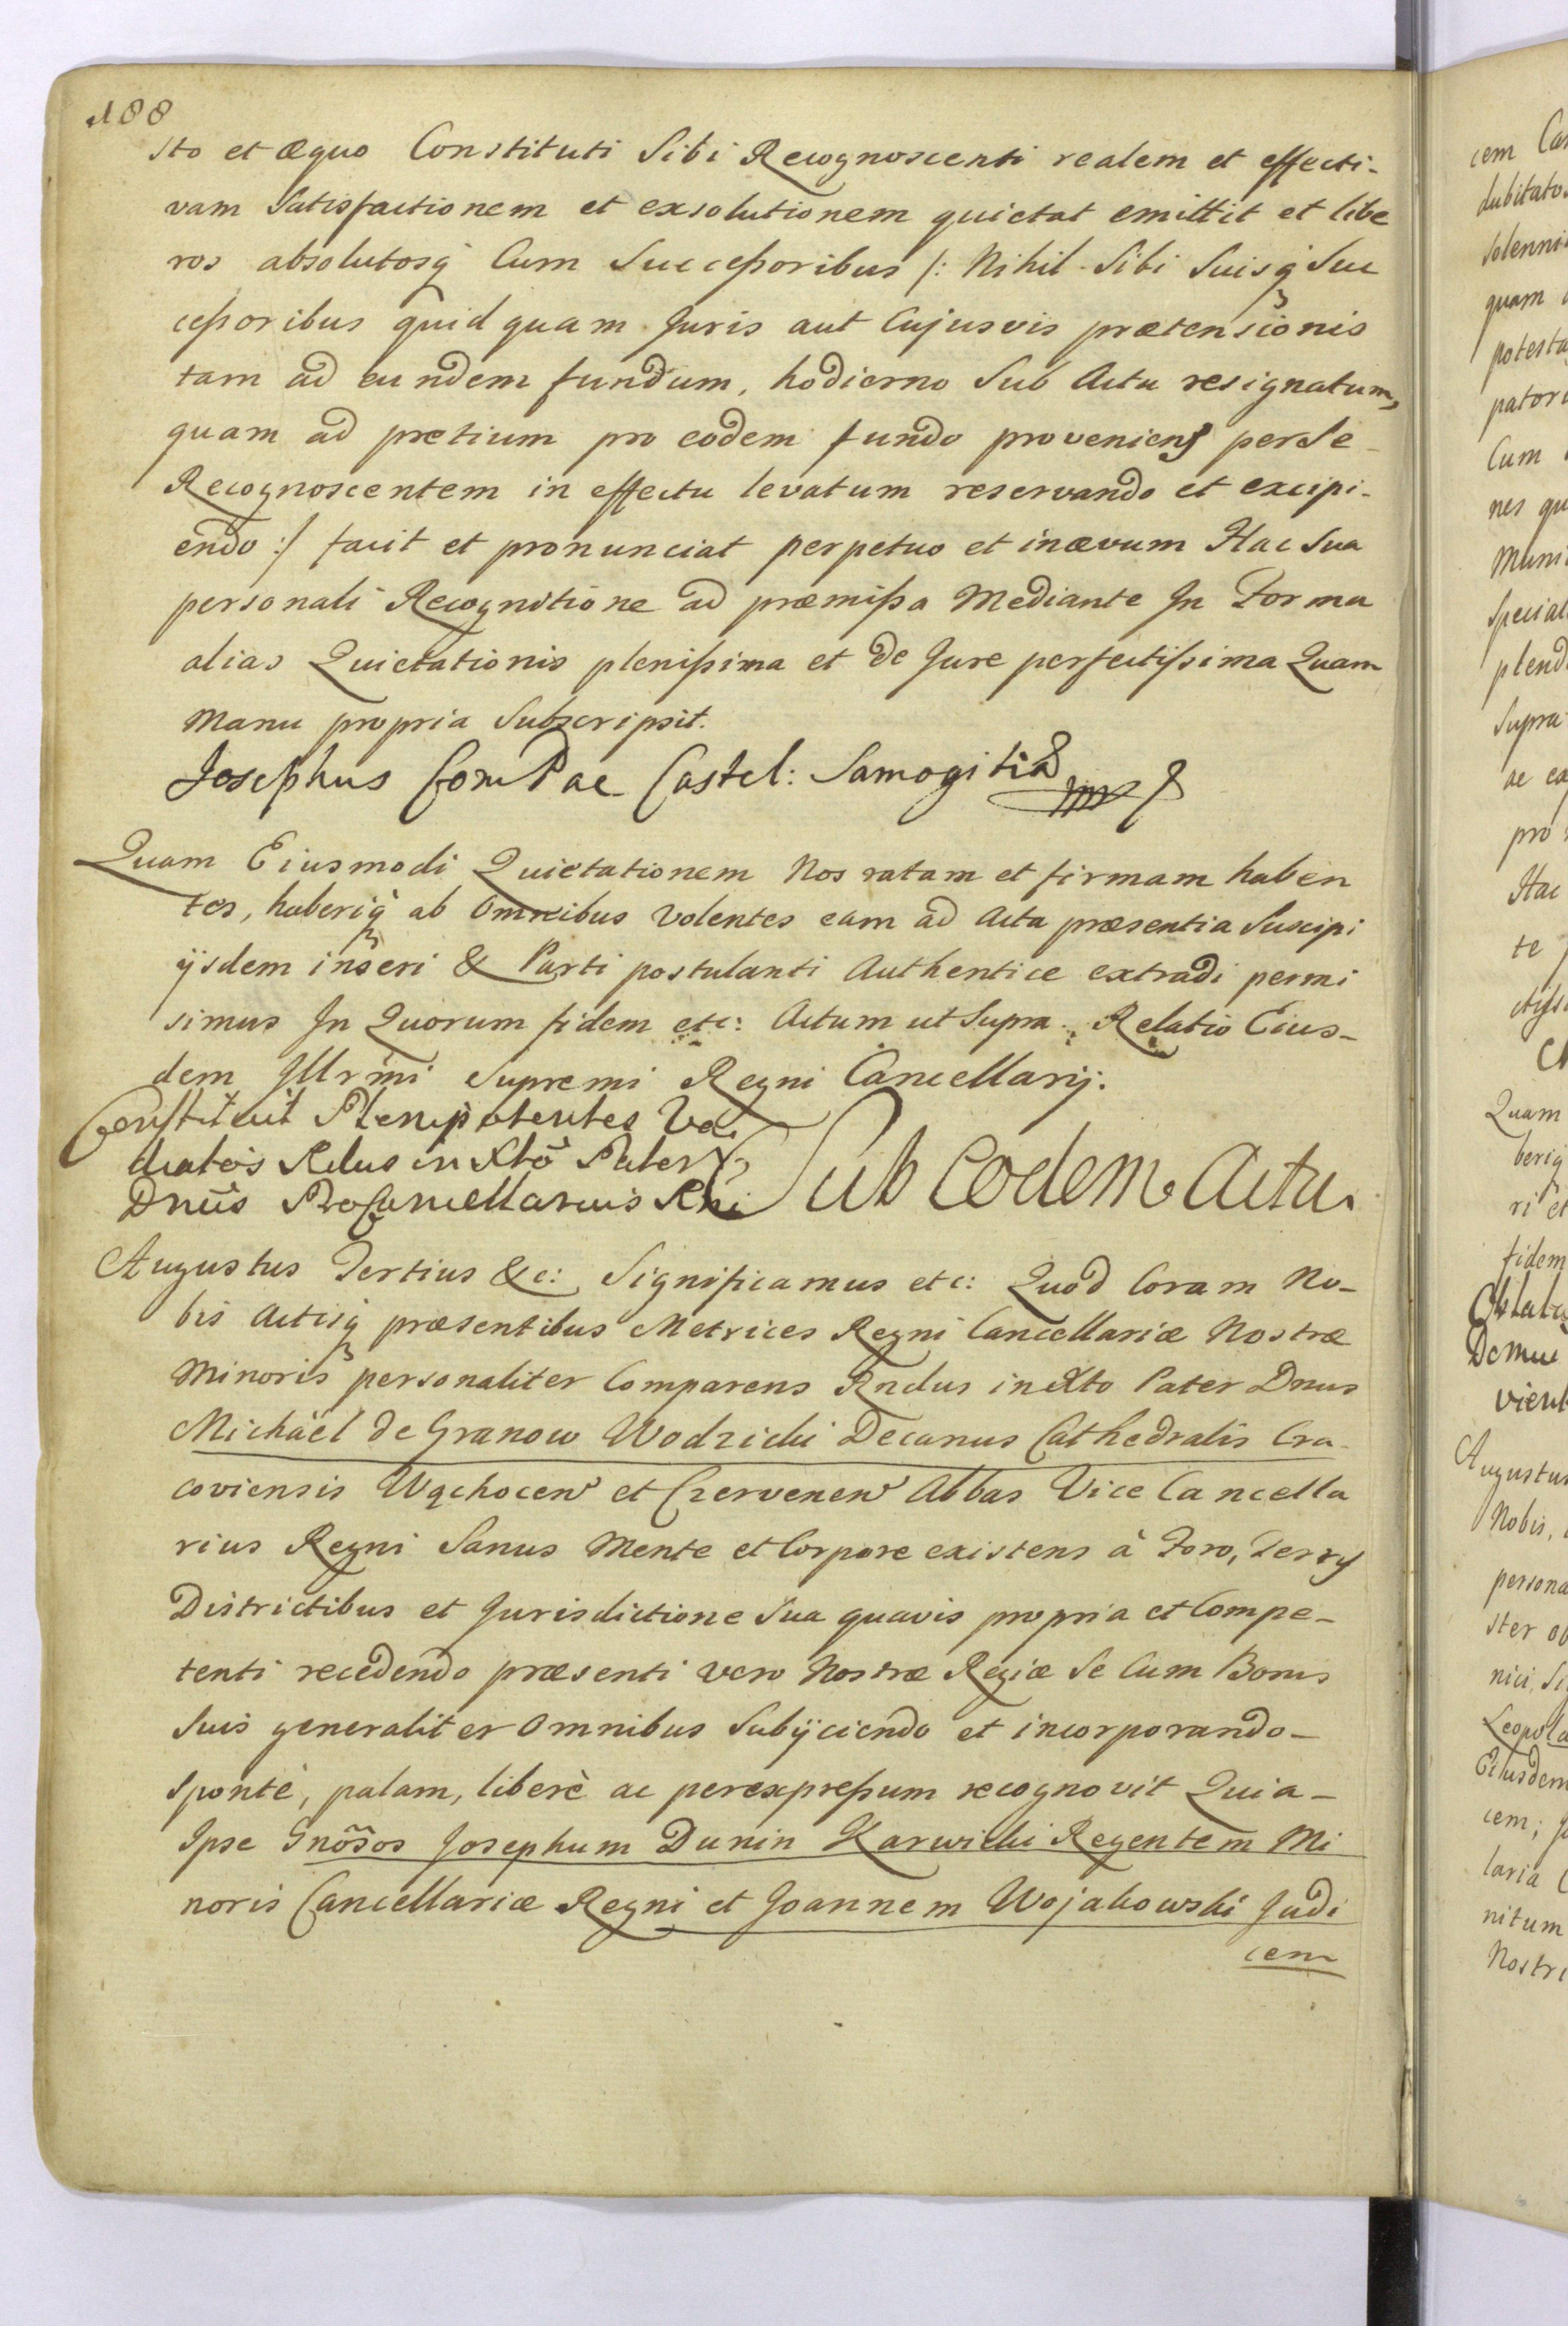 188
sto et æquo Constituti Sibi Recognoscenti realem et effecti-
vam Satisfactionem et exsolutionem quietat emittit et libe
ros absolutosq̃ Cum Succeßoribus /: Nihil Sibi Suisq̃ Suc
ceßoribus quidquam Juris aut Cujusvis prætensionis
tam ad eundem fundum, hodierno Sub Actu resignatum,
quam ad pretium pro eodem fundo proveniens per Se
Recognoscentem in effectu levatum reservando et excipi-
endo :/ facit et pronunciat perpetuo et inævum Hac Sua
personali Recognitione ad præmißa Mediante In Forma
alias Quietationis plenißima et de Jure perfectißima Quam
Manu propria Subscripsit.
Josephus Com Pac Castel: Samogitiæ mp
Quam Eiusmodi Quietationem Nos ratam et firmam haben
tes, haberiq̃ ab Omnibus Volentes eam ad Acta præsentia Suscipi
ijsdem inseri & Parti postulanti Authentice extradi permi
simus In Quorum fidem etc: Actum ut Supra. Relatio Eius-
dem Illr̃mi Supremi Regni Cancellarij.
Constituit Plenipotentes
Rdus in Xtõ Pater
Dnũs ProCancellarius Rni
Sub Eodem Actu
Augustus Tertius &c: Significamus etc: Quod Coram No-
bis Actisq̃ præsentibus Metrices Regni Cancellariæ Nostræ
Minoris personaliter Comparens Rndus in Xto Pater Dnus
Michäel de Granow Wodzicki Decanus Cathedralis Cra-
coviensis Wąchocen et Czervenen Abbas Vice Cancella
rius Regni Sanus Mente et Corpore existens à Foro, Terrys
Districtibus et Jurisdictione Sua quavis propria et Compe-
tenti recedendo præsenti vero Nostræ Regiæ Se Cum Bonis
Suis generaliter Omnibus Subijciendo et incorporando-
Sponte, palam, liberè ac per expreßum recognovit Quia-
Ipse Gnõsos Josephum Dunin Karwicki Regentem Mi
noris Cancellariæ Regni et Joannem Wojakowski Judi
cem
cem
solenni
quam
Cum
nes
Supra
pro
Hac
te
Quam
beriq
ri et
fidem
Augustus
Nobis,
persona
ster
nici
Eiusdem
cem;
laria
nitum
Nostri